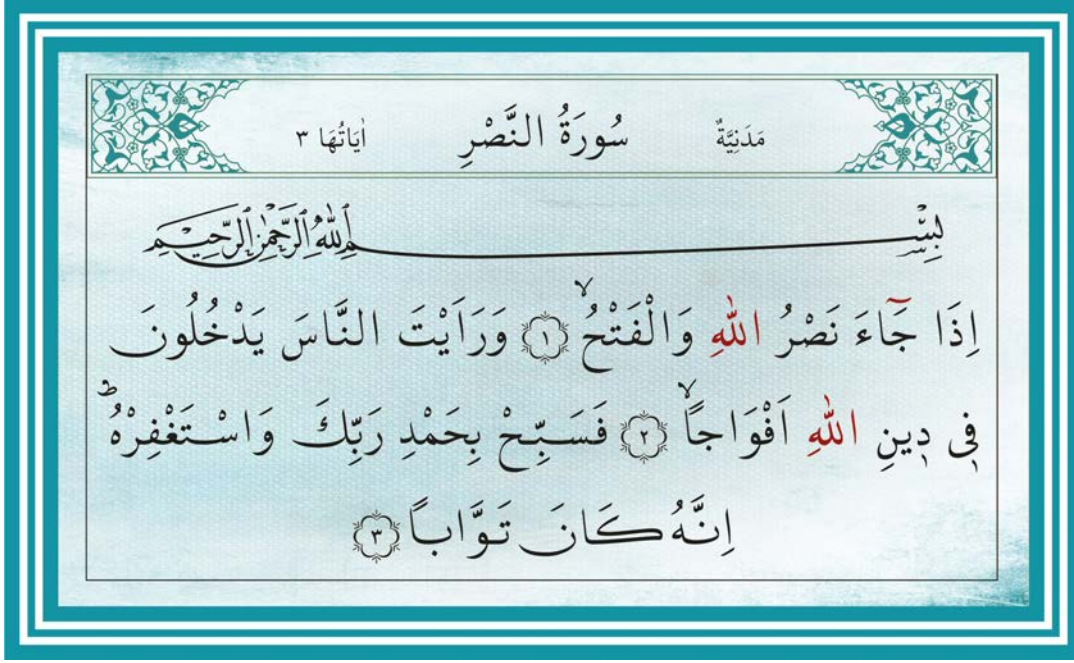 مَدَنِيَّةٌ سُورَةُ النَّصْرِ اٰيَاتُهَا ٣
بِسْمِ اللّٰهِ الرَّحْمٰنِ الرَّحِيمِ
اِذَا جَٓاءَ نَصْرُ اللّٰهِ وَالْفَتْحُۙ ﴿١﴾ وَرَاَيْتَ النَّاسَ يَدْخُلُونَ
ف۪ى د۪ينِ اللّٰهِ اَفْوَاجاًۙ ﴿٢﴾ فَسَبِّحْ بِحَمْدِ رَبِّكَ وَاسْتَغْفِرْهُۜ
اِنَّهُ كَانَ تَوَّاباً ﴿٣﴾